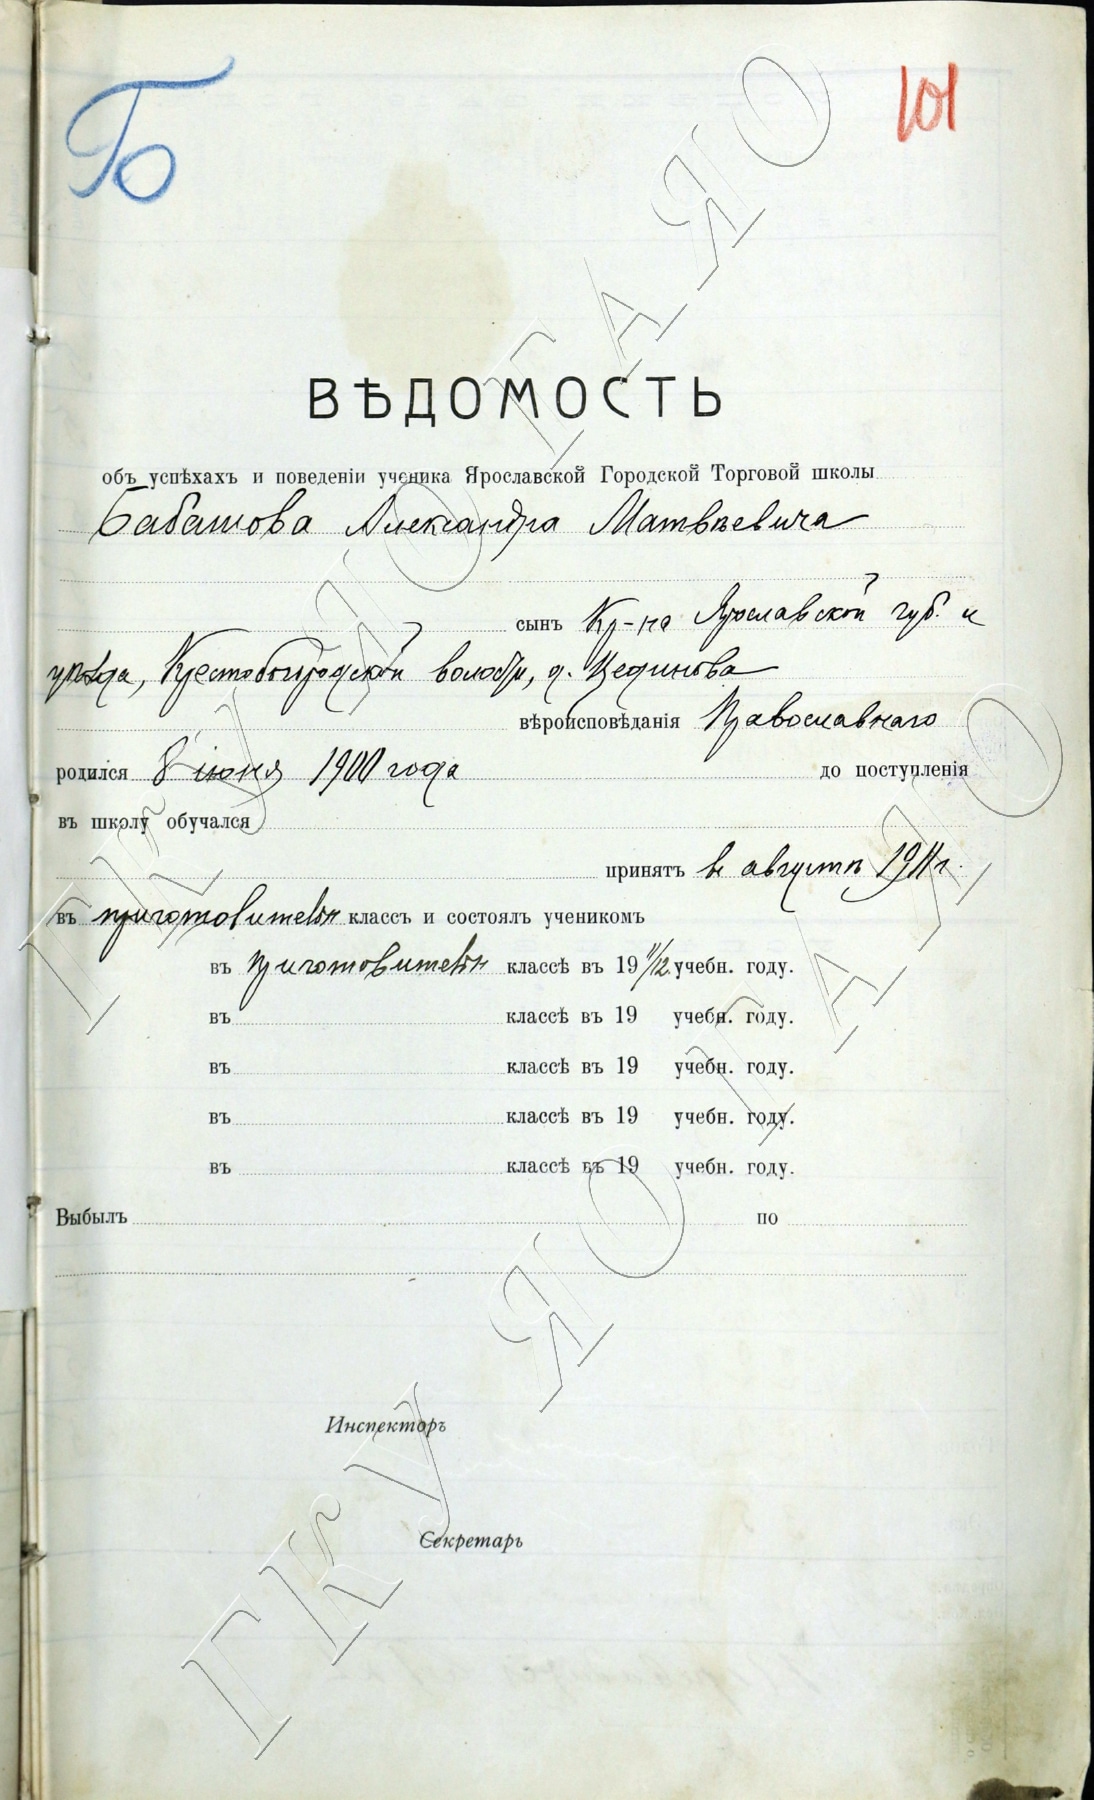 Б
101
ВѢДОМОСТЬ
объ успѣхахъ и поведеніи ученика Ярославской Городской Торговой школы
Бабашова Александра Матвѣевича
сынъ Кр-на Ярославской губ. и
уѣзда, Крестобогородской волости, д. Цединова
вѣроисповѣданія Православнаго
родился 8 іюня 1900 года до поступленія
въ школу обучался
принятъ въ августѣ 1911 г.
въ приготовительн классъ и состоялъ ученикомъ
въ приготовительн классѣ въ 19 11/12 учебн. году.
въ классѣ въ 19 учебн. году.
въ классѣ въ 19 учебн. году.
въ классѣ въ 19 учебн. году.
въ классѣ въ 19 учебн. году.
Выбылъ по
Инспекторъ
Секретарь
ГКУ ЯО ГАЯО
ГКУ ЯО ГАЯО